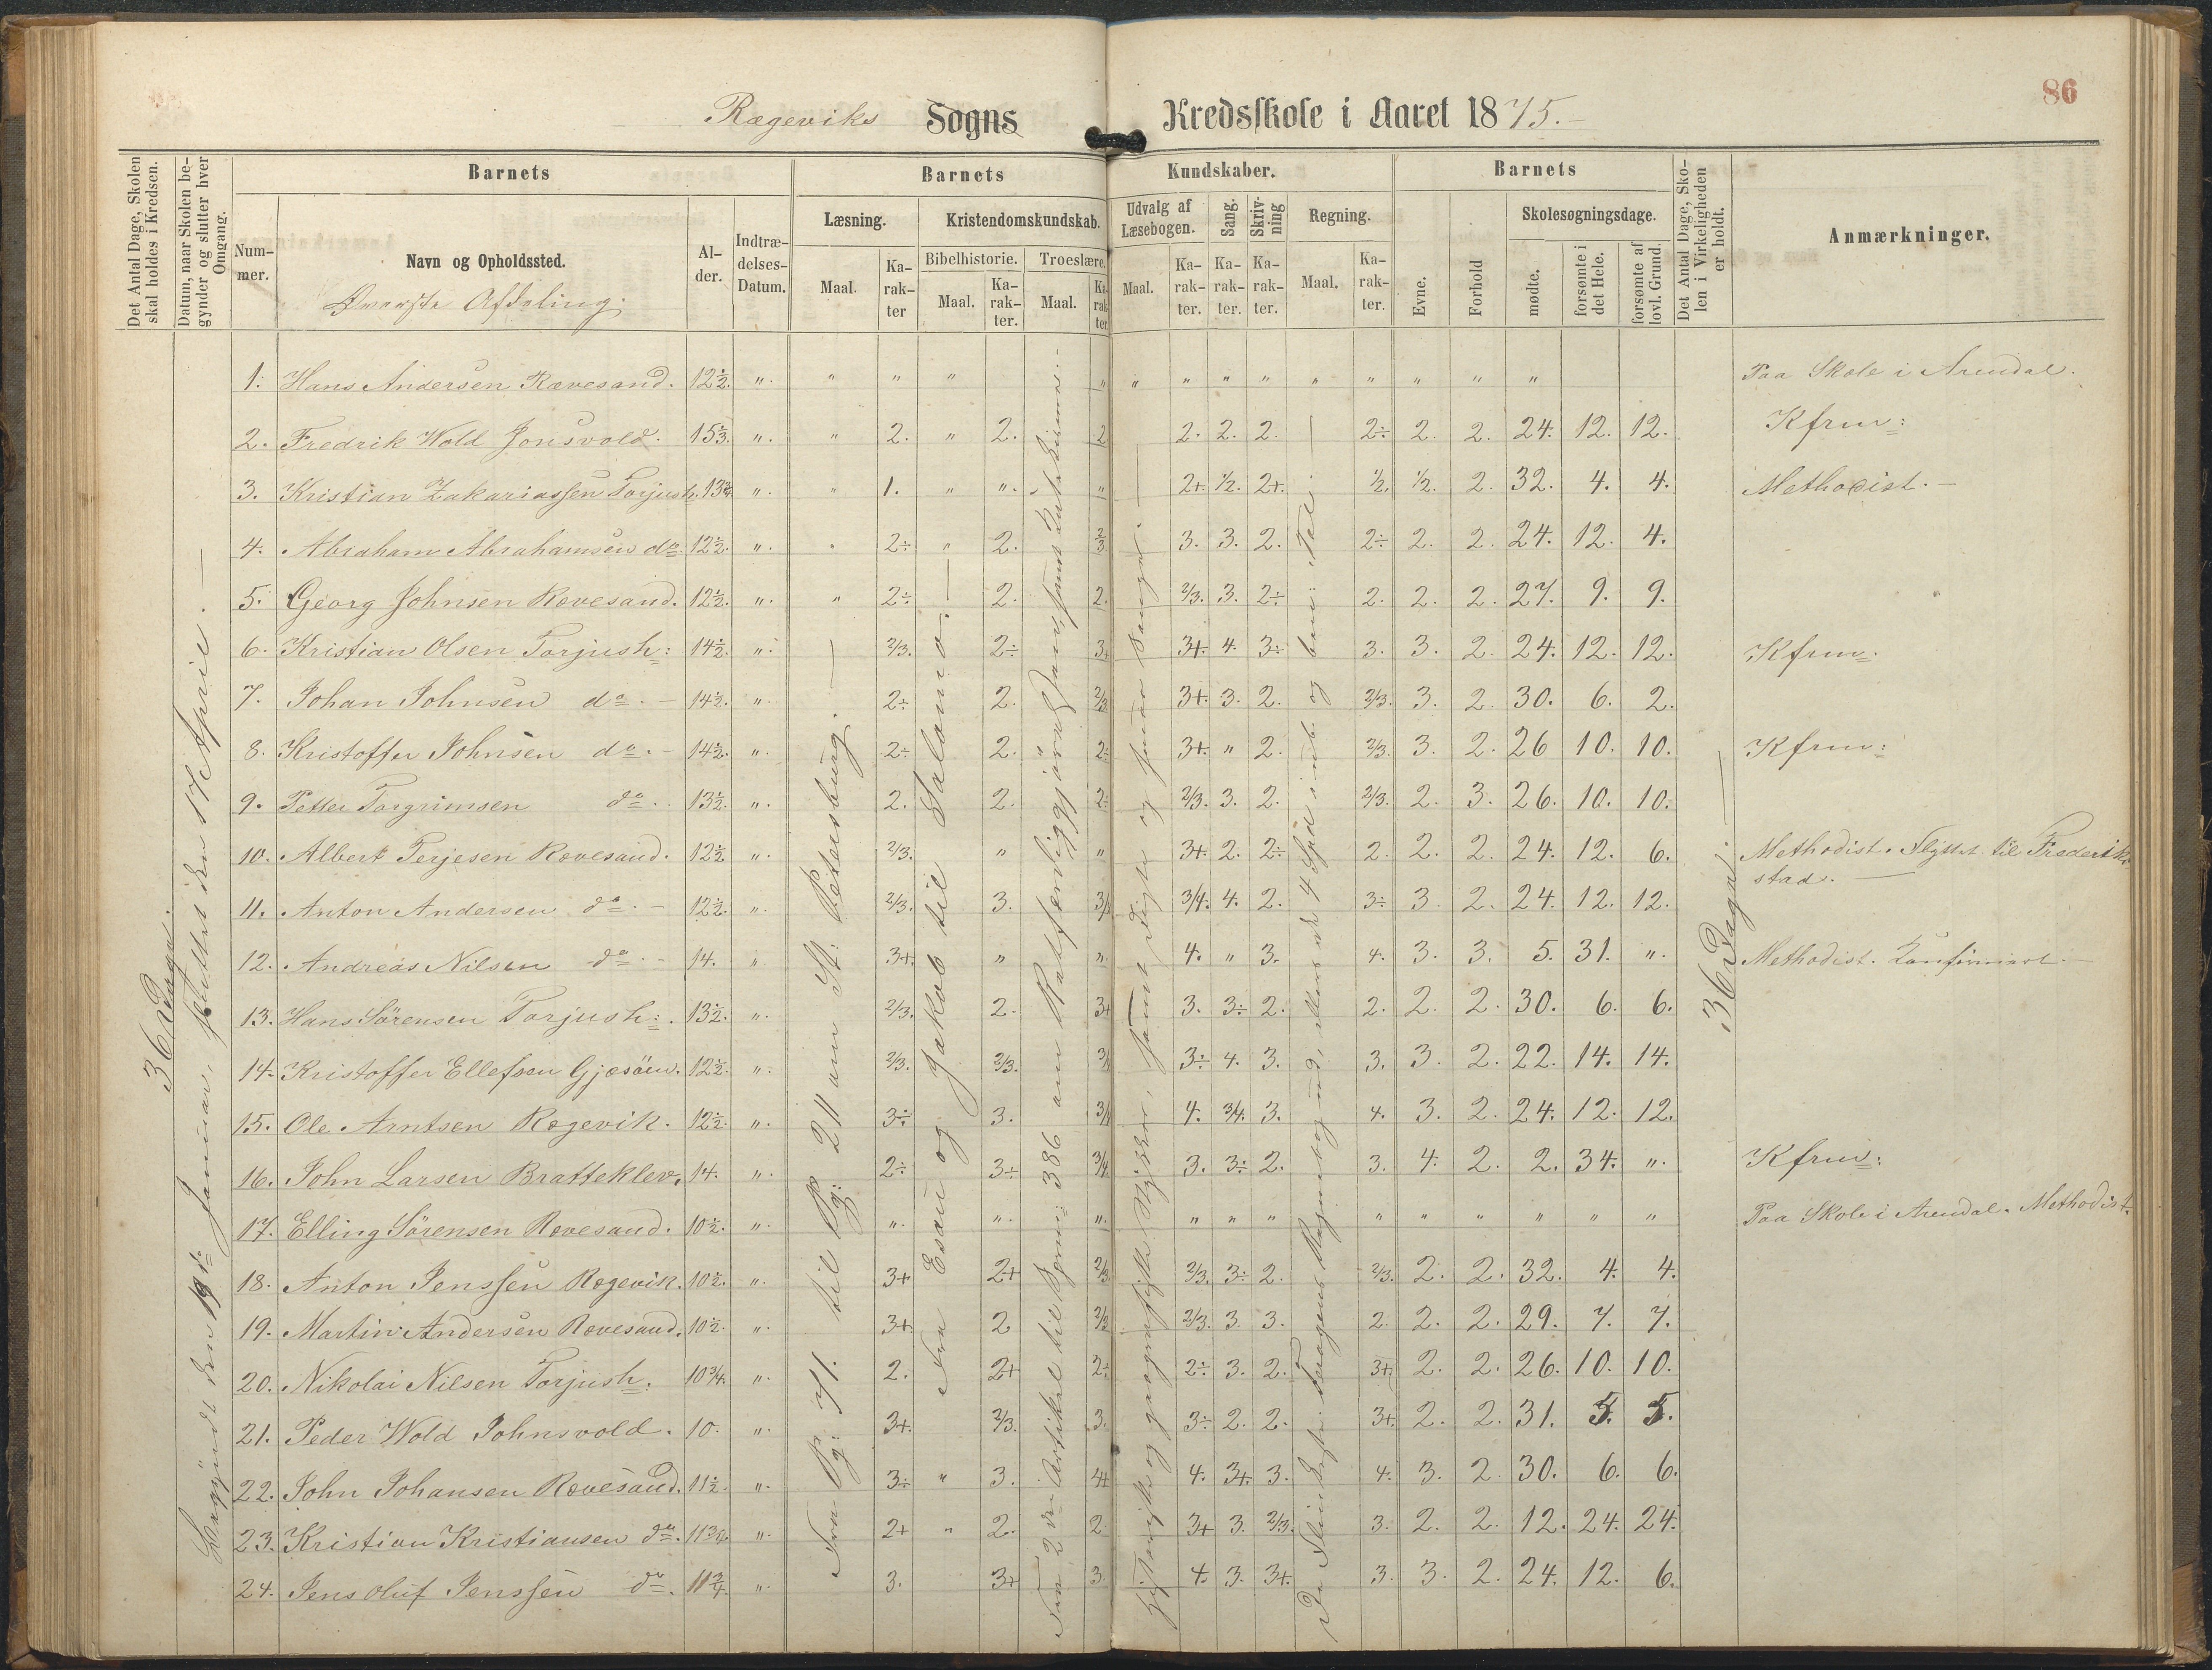 86
Rægeviks Sogns Kredsskole i Aaret 1875.
Det Antal Dage, Skolen skal holdes i Kredsen.
Datum, naar Skolen begynder og slutter hver Omgang.
Barnets
Barnets
Kundskaber.
Barnets
Det Antal Dage, Skolen i Virkeligheden er holdt.
Anmærkninger.
Nummer.
Navn og Opholdssted.
Alder.
Indtrædelses-Datum.
Læsning.
Kristendomskundskab.
Udvalg af Læsebogen.
Sang.
Skrivning
Regning.
Evne.
Forhold
Skolesøgningsdage.
Maal.
Karakter
Bibelhistorie.
Troeslære.
Maal.
Karakter.
Maal.
Karakter
Maal.
Karakter.
Karakter.
Karakter.
Maal.
Karakter.
mødte.
forsømte i det Hele.
forsømte af lovl. Grund.
Øverste Afdeling.
36 Dage.
Begyndt den 19de Januar, sluttet den 17 April.
Fra Pg: 71. til Pg: 211 om St: Petersburg.
Fra Esau og Jakob til Salamo.
36 Dage.
1. Hans Andersen Rævesand. 12½. " " " " " " " " " " " " " " Paa Skole i Arendal.
2. Fredrik Wold Jonsvold. 15⅓. " " 2. " 2. 2 2. 2. 2. 2÷ 2. 2. 24. 12. 12. Kfrm:
3. Kristian Zakariassen Torjush. 13¾. " " 1. " " " 2+. ½. 2+. ½. ½. 2. 32. 4. 4. Methodist.
4. Abraham Abrahamsen do. 12½. " " 2÷ " 2. ⅔ 3. 3. 2. 2÷ 2. 2. 24. 12. 4.
5. Georg Johnsen Rævesand. 12½. " " 2÷ 2. 2. 2/3. 3. 2÷ 2. 2. 2. 27. 9. 9.
6. Kristian Olsen Torjush: 14½. " 2/3. 2÷ 3+ 3+. 4. 3÷ 3. 3. 2. 24. 12. 12. Kfrm.
7. Johan Johnsen do. 14½. " 2÷ 2. 2/3 3+. 3. 2. 2/3. 3. 2. 30. 6. 2.
8. Kristoffer Johnsen do. 14½. " 2÷ 2. 2÷ 3+. " 2. 2/3. 3. 2. 26 10. 10. Kfrm:
9. Petter Torgrimsen do. 13½. " 2. 2. 2÷ 2/3. 3. 2. 2/3. 2. 3. 26. 10. 10.
10. Albert Terjesen Rævesand. 12½ " 2/3. " " 3+. 2. 2÷ 2. 2. 2. 24. 12. 6. Methodist. Flyttet til Frederikstad.
11. Anton Andersen do. 12½. " 2/3. 3. 3/4 3/4. 4. 2. 3÷ 3. 2. 24. 12. 12.
12. Andreas Nilsen do. 14. " 3+. " " 4. " 3. 4. 3. 3. 5. 31. " Methodist. Konfirmert.
13. Hans Sörensen Torjush: 13½. " 2/3. 2. 3+ 3. 3÷ 2. 2. 2. 2. 30. 6. 6.
14. Kristoffer Ellefsen Gjesöen. 12½. " 2/3. 2/3. 3/4 3÷ 4. 3. 3. 3. 2. 22. 14. 14.
15. Ole Arntsen Rægevik. 12½. " 3÷ 3. 3/4 4. 3/4. 3. 4. 3. 2. 24. 12. 12.
16. John Larsen Bratteklev. 14. " 2÷ 3÷ 3/4 3. 3÷ 2. 3. 4. 2. 2. 34. " Kfrm:
17. Elling Sörensen Rævesand. 10½. " " " " " " " " " " " " " Paa Skole i Arendal. Methodist.
18. Anton Jenssen Rægevik. 10½. " 3+ 2+ 2/3 2/3. 3÷ 2. 2/3. 2. 2. 32. 4. 4.
19. Martin Andersen Rævesand. 10½. " 3+. 2 2/3 2/3. 3. 3. 2. 2. 2. 29. 7. 7.
20. Nikolai Nilsen Torjush. 10¾. " 2. 2+ 2÷ 2÷ 3. 2. 3+ 2. 2. 26. 10. 10.
21. Peder Wold Johnsvold. 10. " 3+. 2/3. 3. 3÷ 2. 2. 3+. 2. 2. 31. 5. 5.
22. John Johansen Rævesand. 11½. " 3÷ " 3. 4+ 4. 3+. 3. 4. 3. 2. 30. 6. 6.
23. Kristian Kristiansen do. 11¾. " 2+ " 2. 2. 3+ 3. 2/3. 3. 2. 2. 12. 24. 24.
24. Jens Oluf Jenssen do. 11¾. " 3. 3+ 3. 4. 3. 3+. 3. 3. 2. 24. 12. 6.